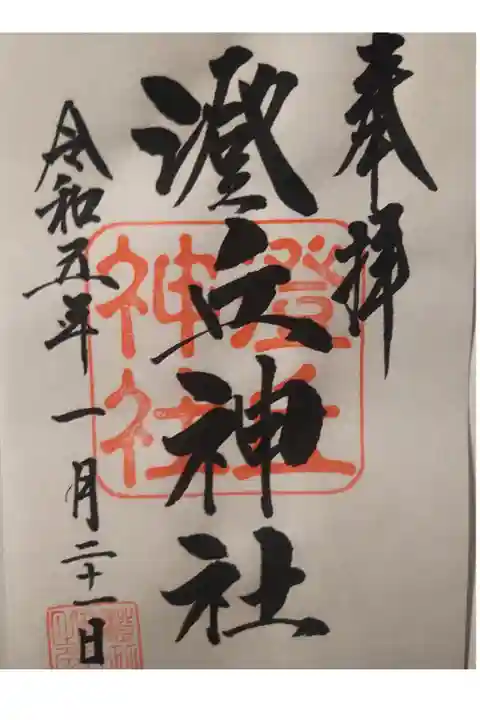 奉拝
澄丘神社
澄丘
神社
令和五年 一月二十一日